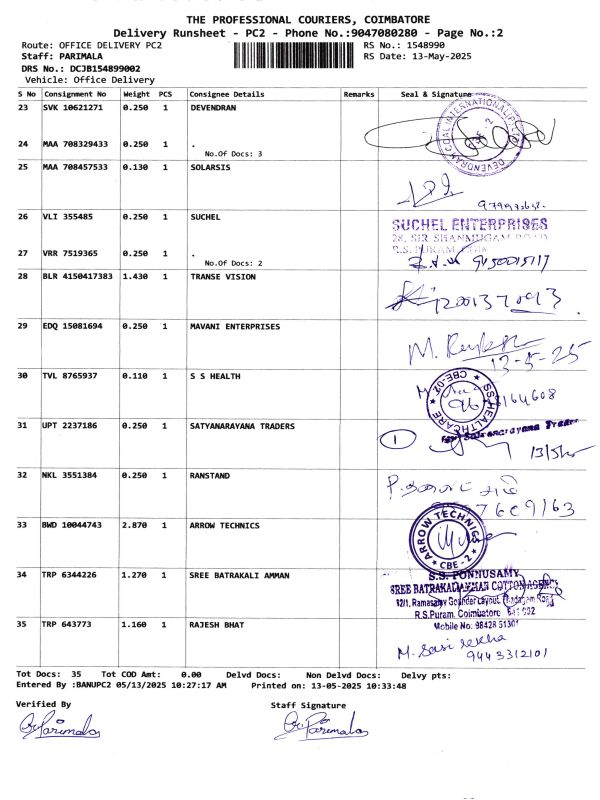 THE PROFESSIONAL COURIERS, COIMBATORE
Delivery Runsheet - PC2 - Phone No.:9047080280 - Page No.:2
Route: OFFICE DELIVERY PC2
RS No.: 1548990
Staff: PARIMALA
RS Date: 13-May-2025
DRS No.: DCJB154899002
Vehicle: Office Delivery
S No Consignment No Weight PCS Consignee Details Remarks Seal & Signature
23 SVK 10621271 0.250 1 DEVENDRAN
24 MAA 708329433 0.250 1 .
No.Of Docs: 3
25 MAA 708457533 0.130 1 SOLARSIS
26 VLI 355485 0.250 1 SUCHEL
SUCHEL ENTERPRISES
28, SIR SHANMUGAM ROAD
R.S. PURAM
27 VRR 7519365 0.250 1 .
No.Of Docs: 2
28 BLR 4150417383 1.430 1 TRANSE VISION
29 EDQ 15081694 0.250 1 MAVANI ENTERPRISES
13-5-25
30 TVL 8765937 0.110 1 S S HEALTH
SS HEALTHCARE CBE-02
31 UPT 2237186 0.250 1 SATYANARAYANA TRADERS
1
32 NKL 3551384 0.250 1 RANSTAND
33 BWD 10044743 2.870 1 ARROW TECHNICS
ARROW TECHNICS
CBE - 2
34 TRP 6344226 1.270 1 SREE BATRAKALI AMMAN
S.S. PONNUSAMY
SREE BATRAKALIAMMAN COTTON AGENCY
12/1, Ramasamy Gounder Layout,
R.S.Puram, Coimbatore - 641 002
Mobile No: 98428 51301
35 TRP 643773 1.160 1 RAJESH BHAT
M. Sasi rekha
9443312101
Tot Docs: 35 Tot COD Amt: 0.00 Delvd Docs: Non Delvd Docs: Delvy pts:
Entered By :BANUPC2 05/13/2025 10:27:17 AM Printed on: 13-05-2025 10:33:48
Verified By Staff Signature
Parimala Parimala